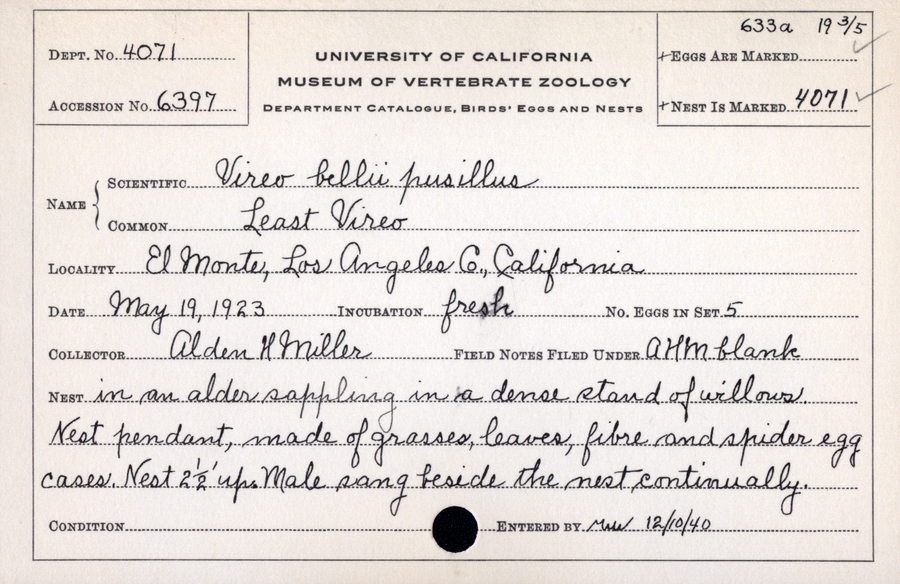 633a 19 3/5
DEPT. NO. 4071
UNIVERSITY OF CALIFORNIA
+ EGGS ARE MARKED
MUSEUM OF VERTEBRATE ZOOLOGY
ACCESSION NO. 6397
DEPARTMENT CATALOGUE, BIRDS' EGGS AND NESTS
+ NEST IS MARKED 4071
NAME
SCIENTIFIC Vireo bellii pusillus
COMMON Least Vireo
LOCALITY El Monte, Los Angeles Co., California
DATE May 19, 1923 INCUBATION fresh NO. EGGS IN SET 5
COLLECTOR Alden H Miller FIELD NOTES FILED UNDER AHM blank
NEST in an alder sappling in a dense stand of willows.
Nest pendant, made of grasses, leaves, fibre and spider egg
cases. Nest 2½' up. Male sang beside the nest continually.
CONDITION ENTERED BY 12/10/40